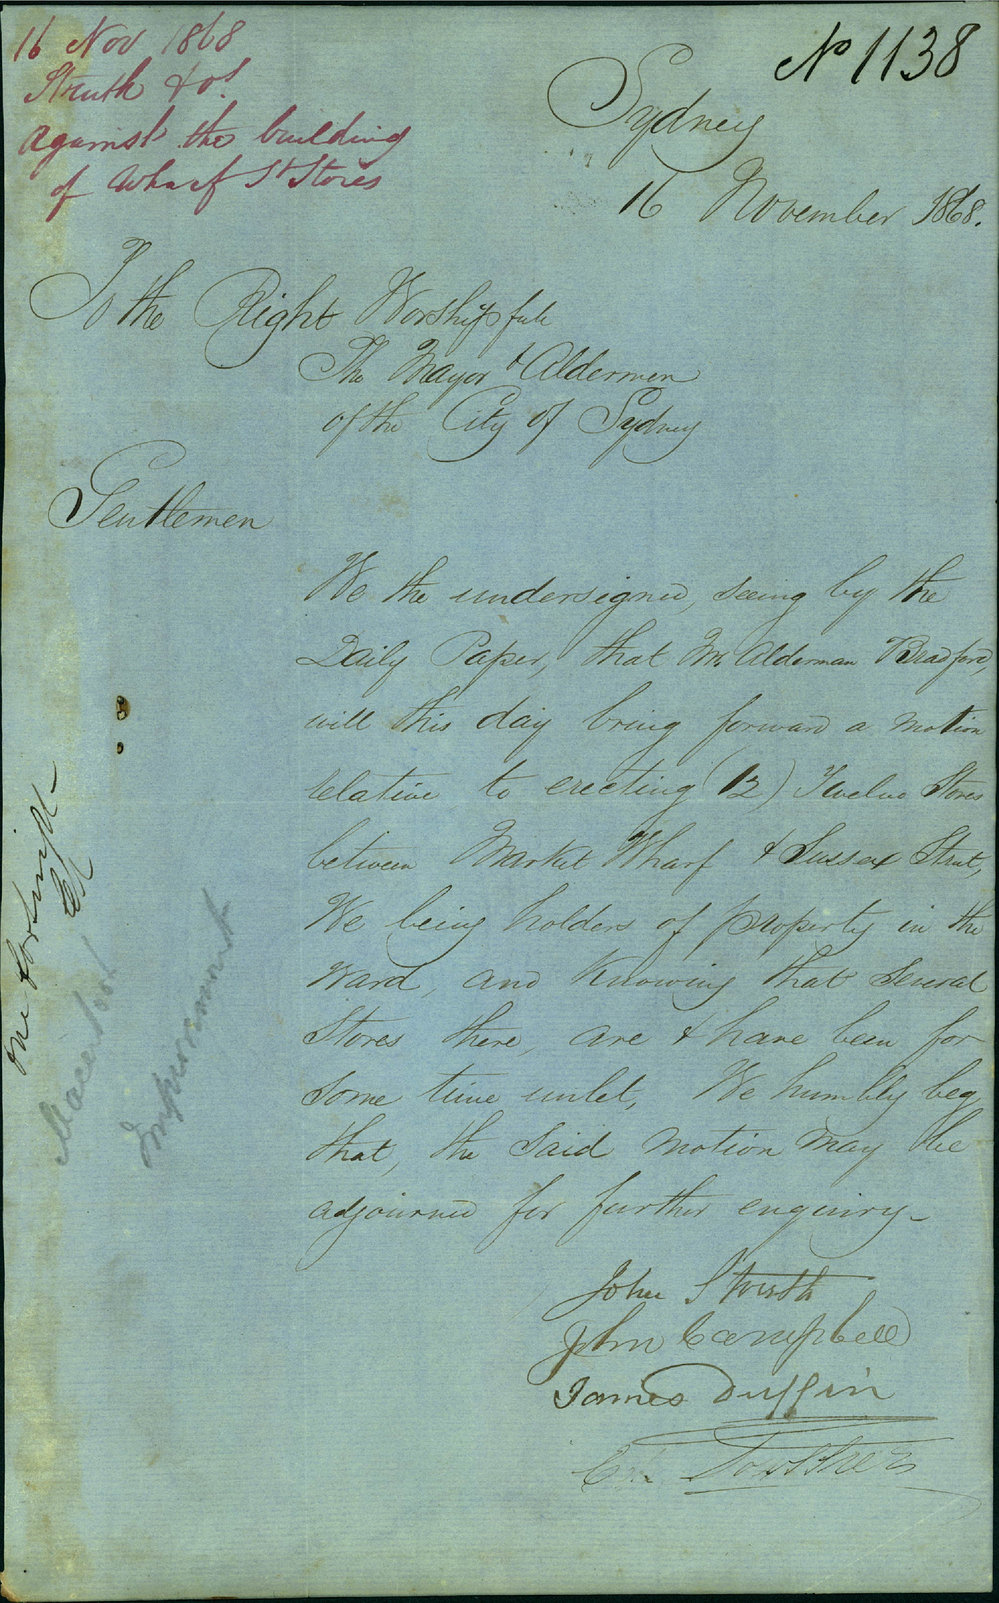 16 Nov 1868
Struth & ors
against the building
of Wharf St Stores
No 1138
Sydney
16 November 1868.
To the Right Worshipfull
The Mayor & Aldermen
of the City of Sydney
Gentlemen
We the undersigned, seeing by the
Daily Paper, that Mr Alderman Bradford,
will this day bring forward a motion
relative to erecting (12) Twelve Stores
between Market Wharf & Sussex Street,
We being holders of property in the
Ward, and Knowing that several
Stores there, are & have been for
some time unlet, We humbly beg
that, the said motion may be
adjourned for further enquiry_
John Struth
John Campbell
James Duffin
one fortnight
Improvement